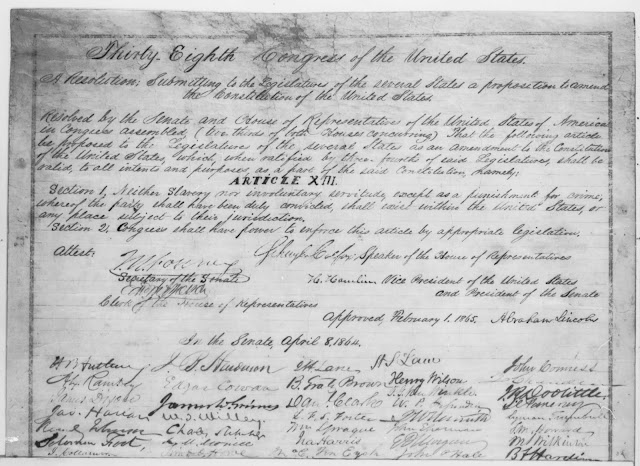 Thirty-Eighth Congress of the United States.
A Resolution; Submitting to the Legislatures of the several States a proposition to amend
the Constitution of the United States.
Resolved by the Senate and House of Representatives of the United States of America
in Congress assembled, (two thirds of both Houses concurring) That the following article
be proposed to the Legislatures of the several States as an amendment to the Constitution
of the United States, which, when ratified by three-fourths of said Legislatures, shall be
valid, to all intents and purposes, as a part of the said Constitution, namely:
ARTICLE XIII.
Section 1, Neither Slavery nor involuntary servitude, except as a punishment for crime,
whereof the party shall have been duly convicted, shall exist within the United States, or
any place subject to their jurisdiction.
Section 2, Congress shall have power to enforce this article by appropriate legislation.
Attest:
Schuyler Colfax, Speaker of the House of Representatives
J.W. Forney
Secretary of the Senate
H. Hamlin Vice President of the United States
and President of the Senate
Clerk of the House of Representatives
Approved, February 1. 1865. Abraham Lincoln
In the Senate, April 8, 1864.
J. B. Henderson E H Lane H S Lane John Conness
Edgar Cowan B. Gratz Brown Henry Wilson
James Dixon James W. Grimes Dan Clark J R Doolittle
Jas. Harlan W. T. Willey L. F. S. Foster Lyman Trumbull
Chas. Sumner Wm Sprague John Sherman
Solomon Foot Ira Harris M S Wilkinson
J. Collamer Ten Eyck John P Hale B F Harding